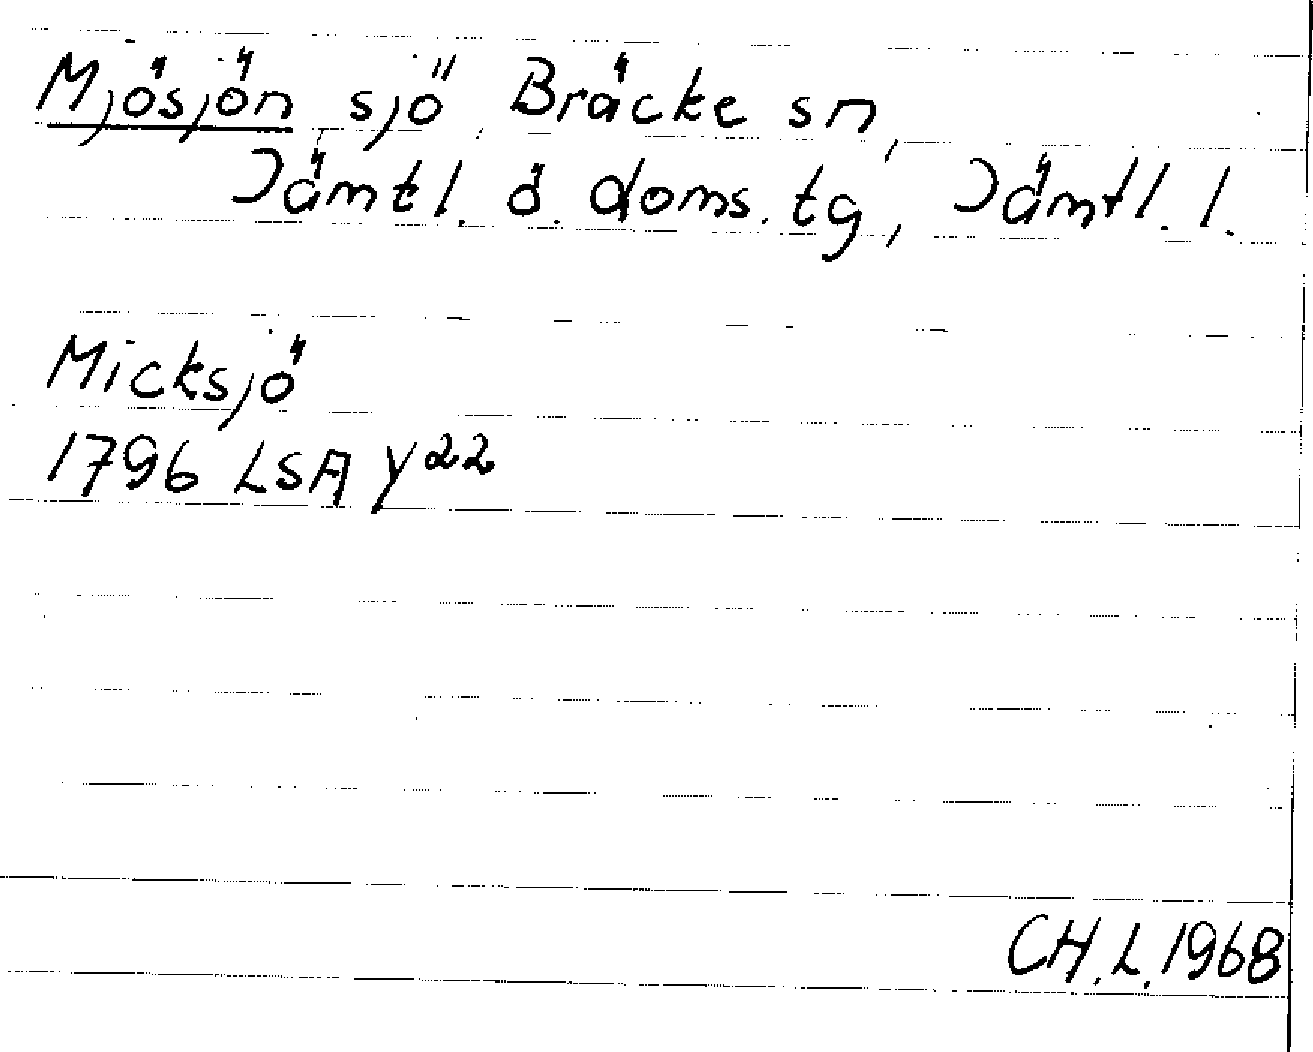 Mjösjön sjö Bräcke sn,
Jämtl. ö. doms. tg, Jämtl. l.
Micksjö
1796 LSA y22
CH. L. 1968